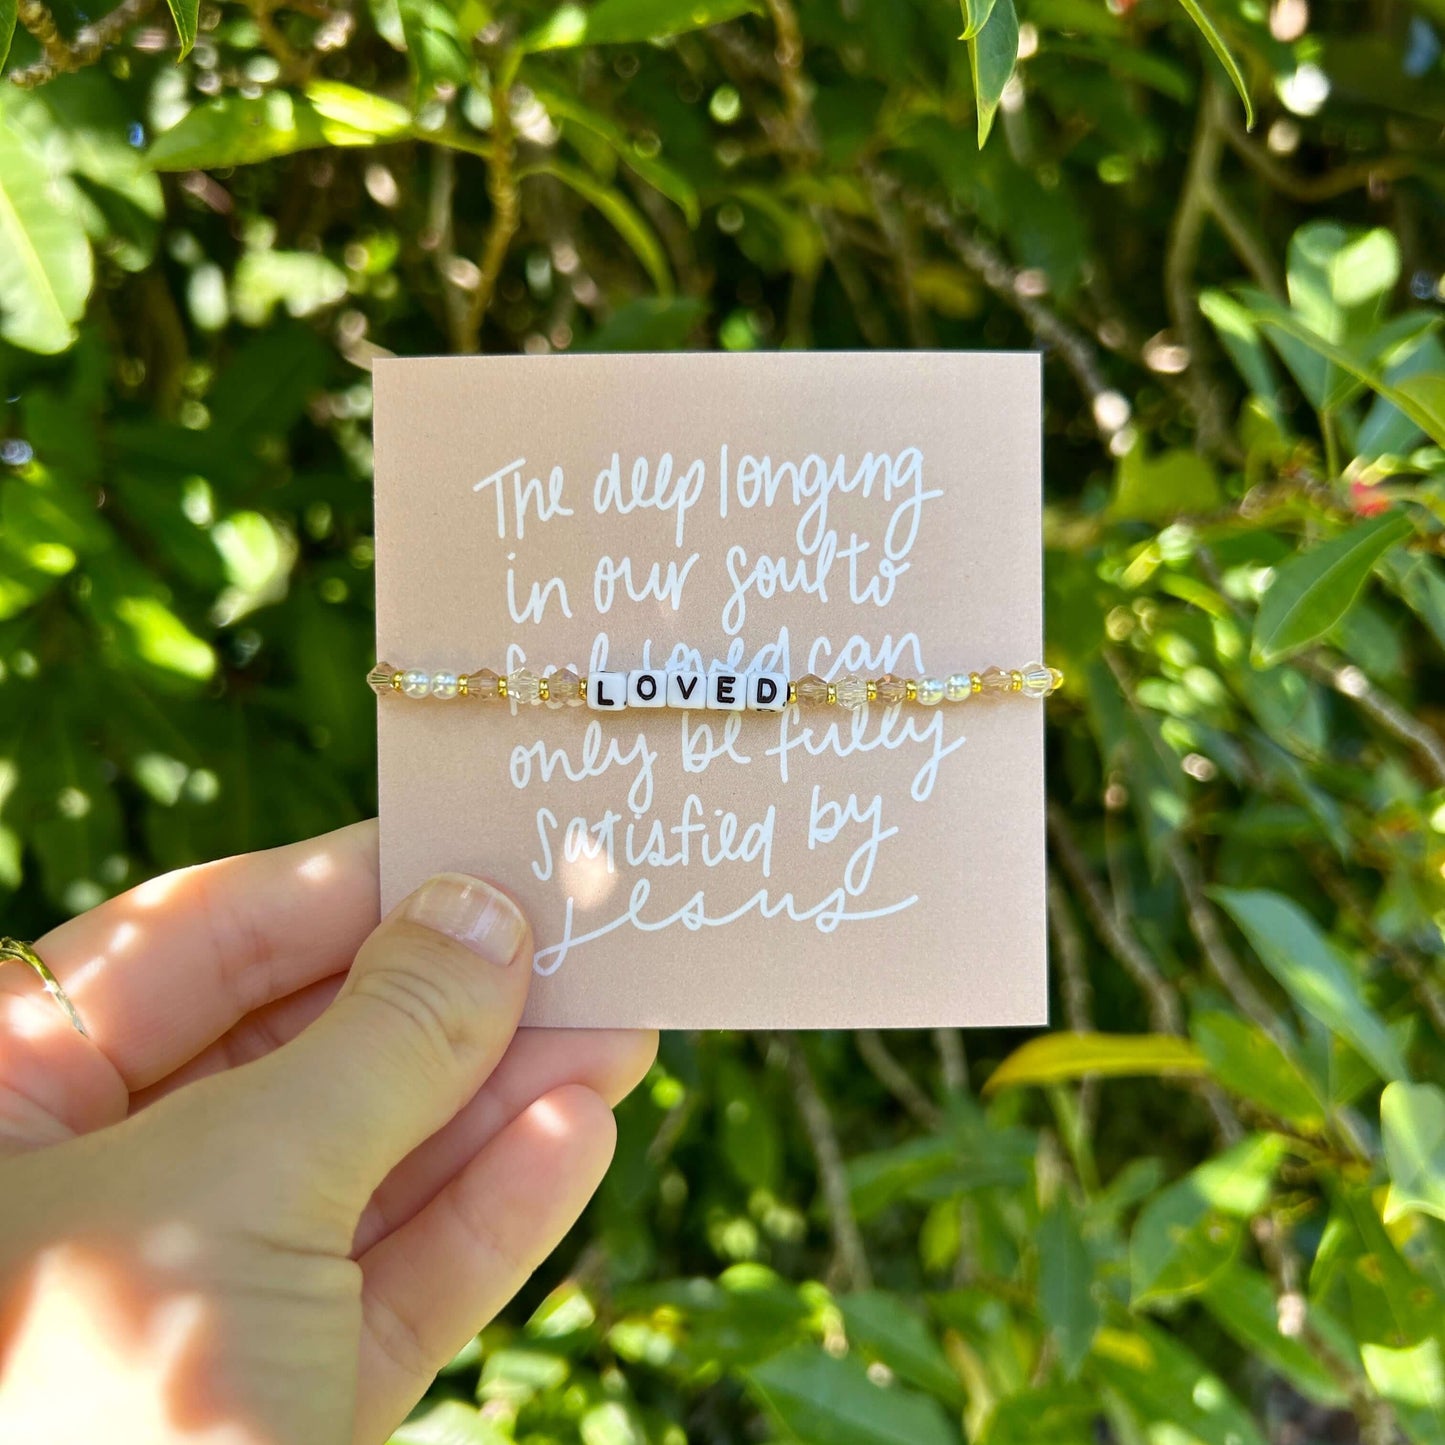 The deep longing
in our soul to
feel loved can
LOVED
only be fully
satisfied by
Jesus